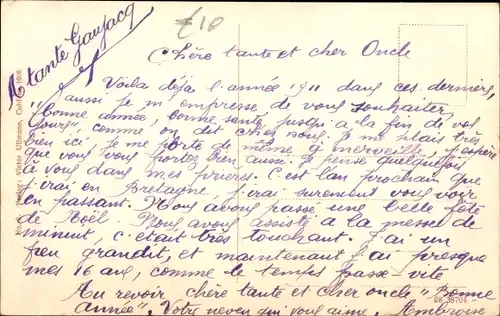 A tante Gaujacq
£10
Chère tante et cher Oncle
Voila déja l'année 1911 dans ces derniers,
aussi je m'empresse de vous souhaiter
"bonne année, bonne santé jusqu'à la fin de vos
jours", comme on dit chez nous. Je me plais très
bien ici. Je me porte de même à merveille, j'espère
que vous vous portez bien aussi. Je pense quelquefois
à vous dans mes prières. C'est l'an prochain que
j'irai en Bretagne j'irai surement vous voir
en passant. Nous avons passé une belle fête
de Noël. Nous avons assisté à la messe de
minuit, c'était très touchant. J'ai un
peu grandit, et maintenant j'ai presque
mes 16 ans, comme le temps passe vite
Au revoir chère tante et cher oncle "Bonne
année". Votre neveu qui vous aime. Ambroise